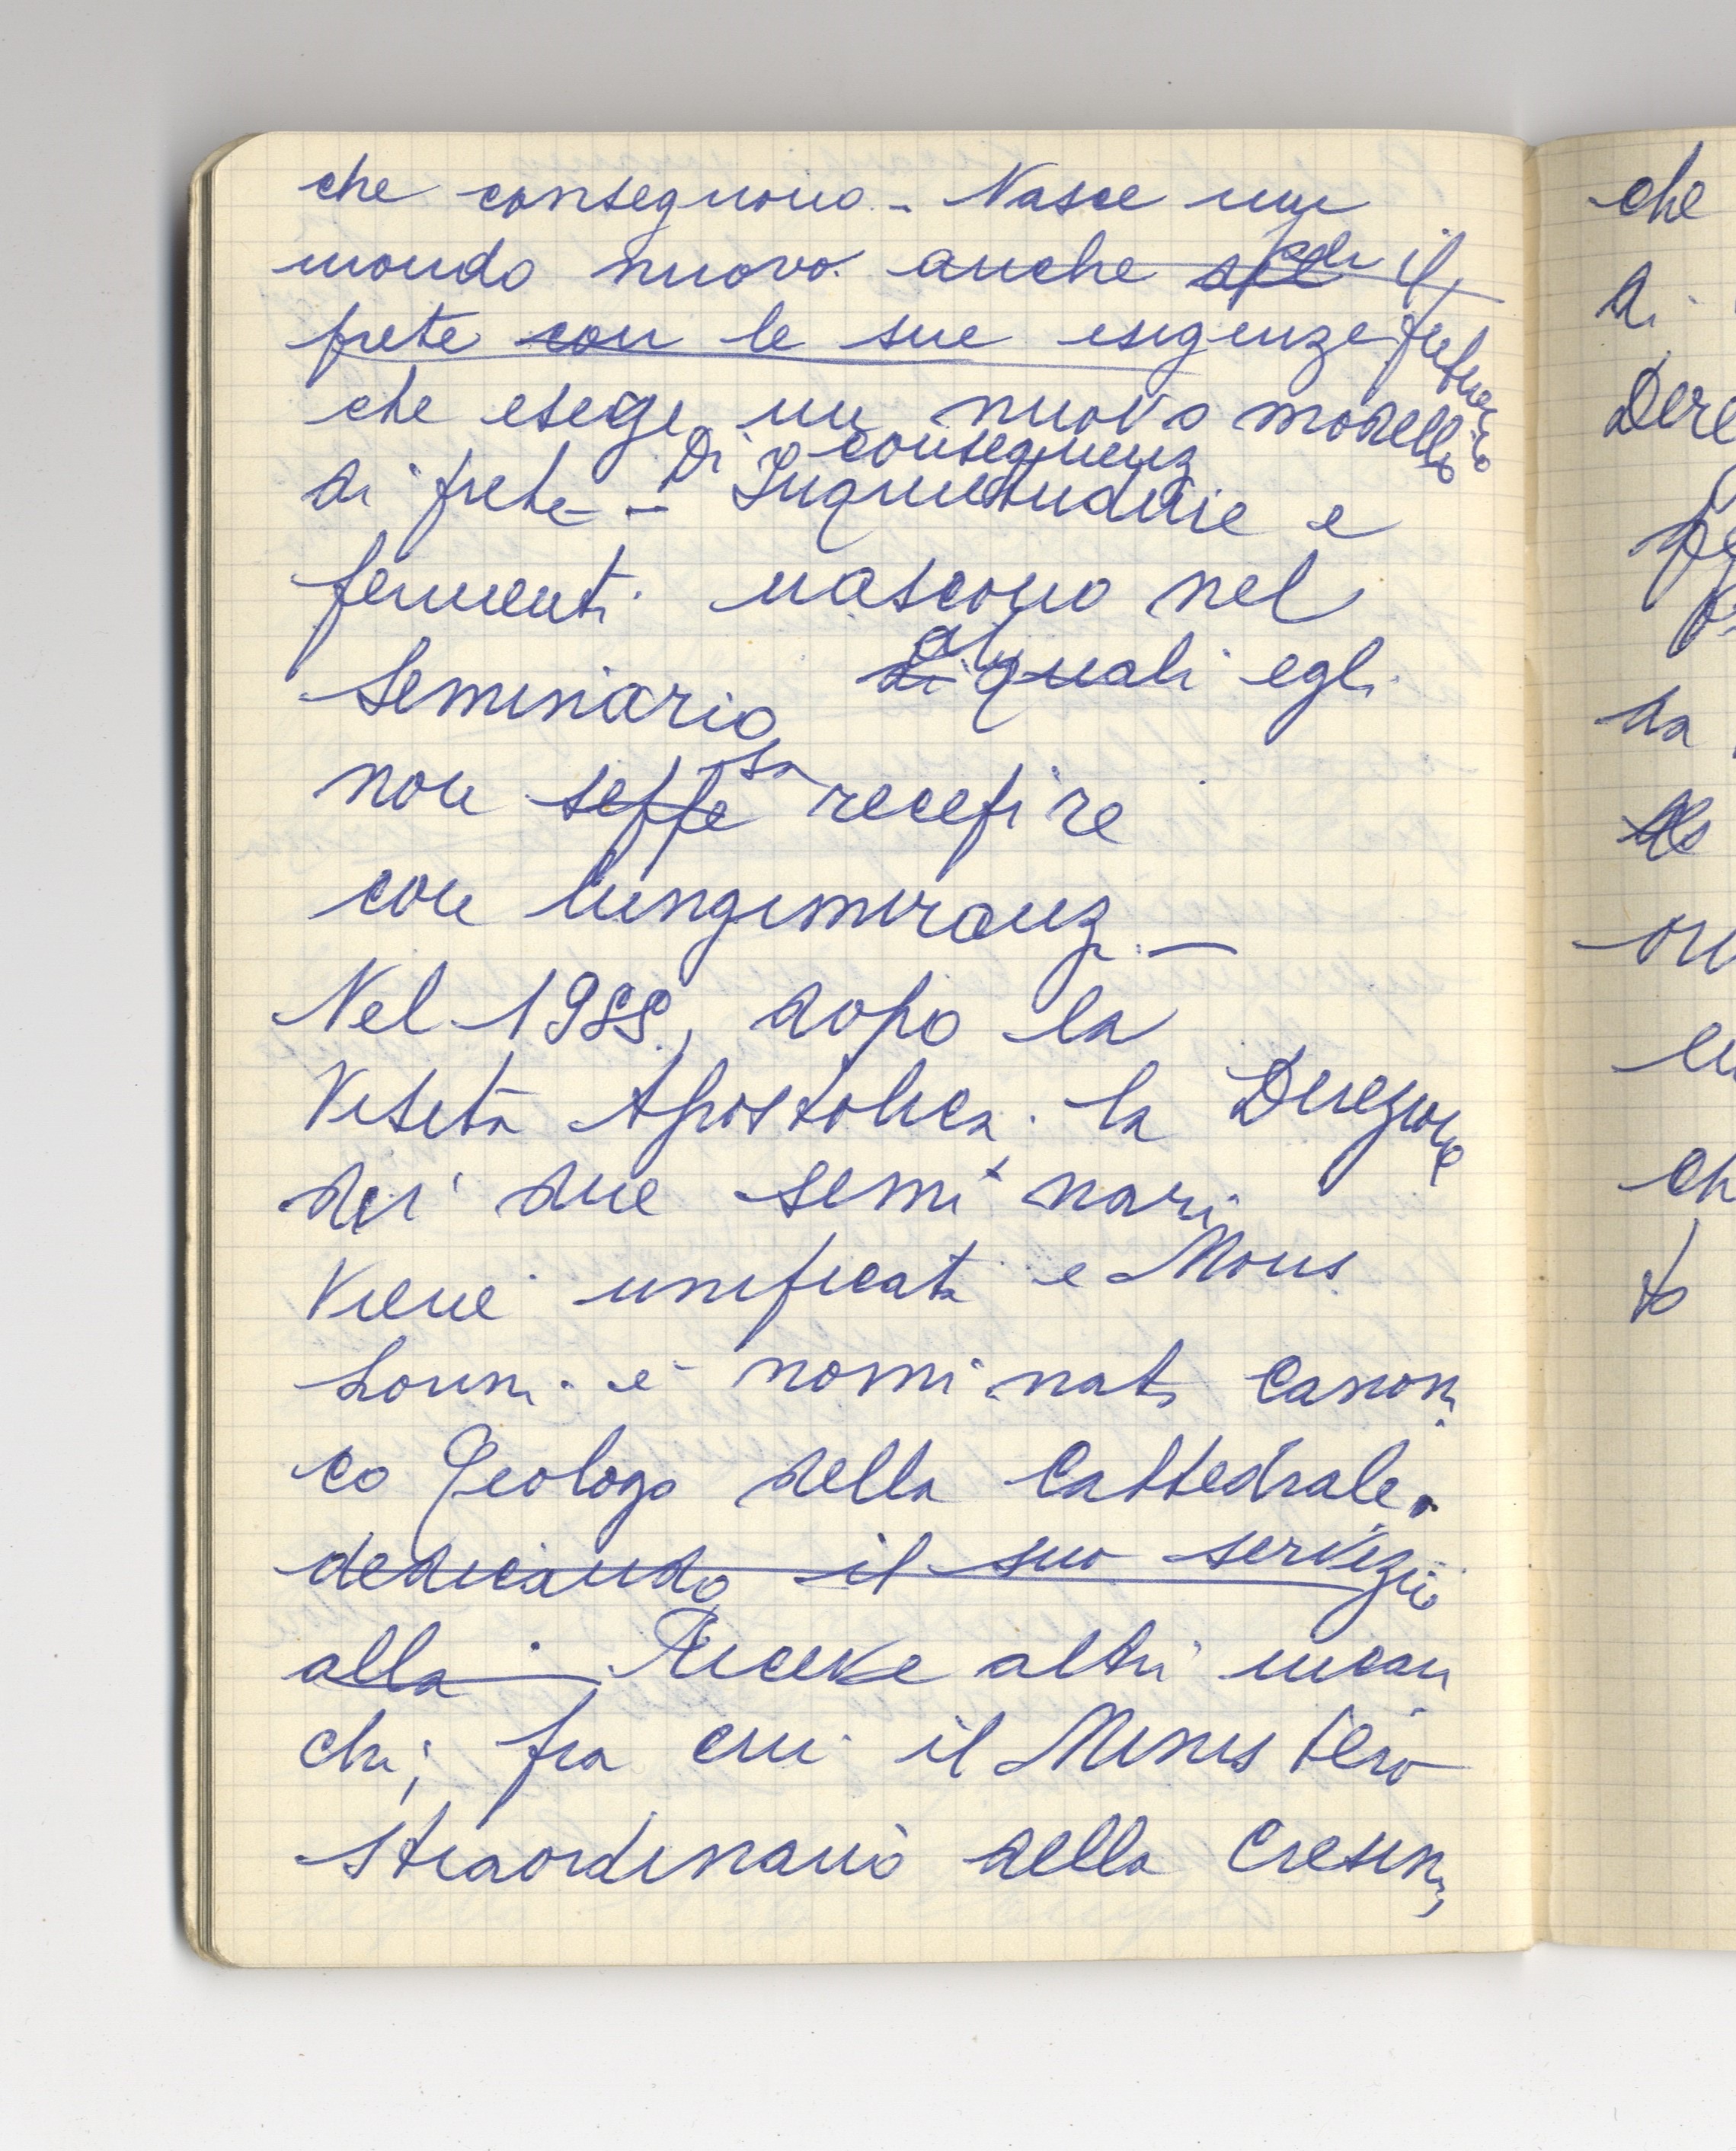 che conseguono. - Nasce un
mondo nuovo. anche per il
prete con le sue esigenze future
che esige un nuovo modello
di prete - Di conseguenza
Inquietudini e
fermenti nascono nel
Seminario di quali egli
non seppe sa recepire
con lungimiranza -
Nel 1988, dopo la
Visita Apostolica. la Direzione
dei due semi nari
viene unificata e Mons
è nominato Canoni
co Teologo della Cattedrale.
dedicando il suo servizio
alla Riceve altri incari
chi; fra cui il Ministero
straordinario della Cresima,
che
di
Dere
da
ch
to